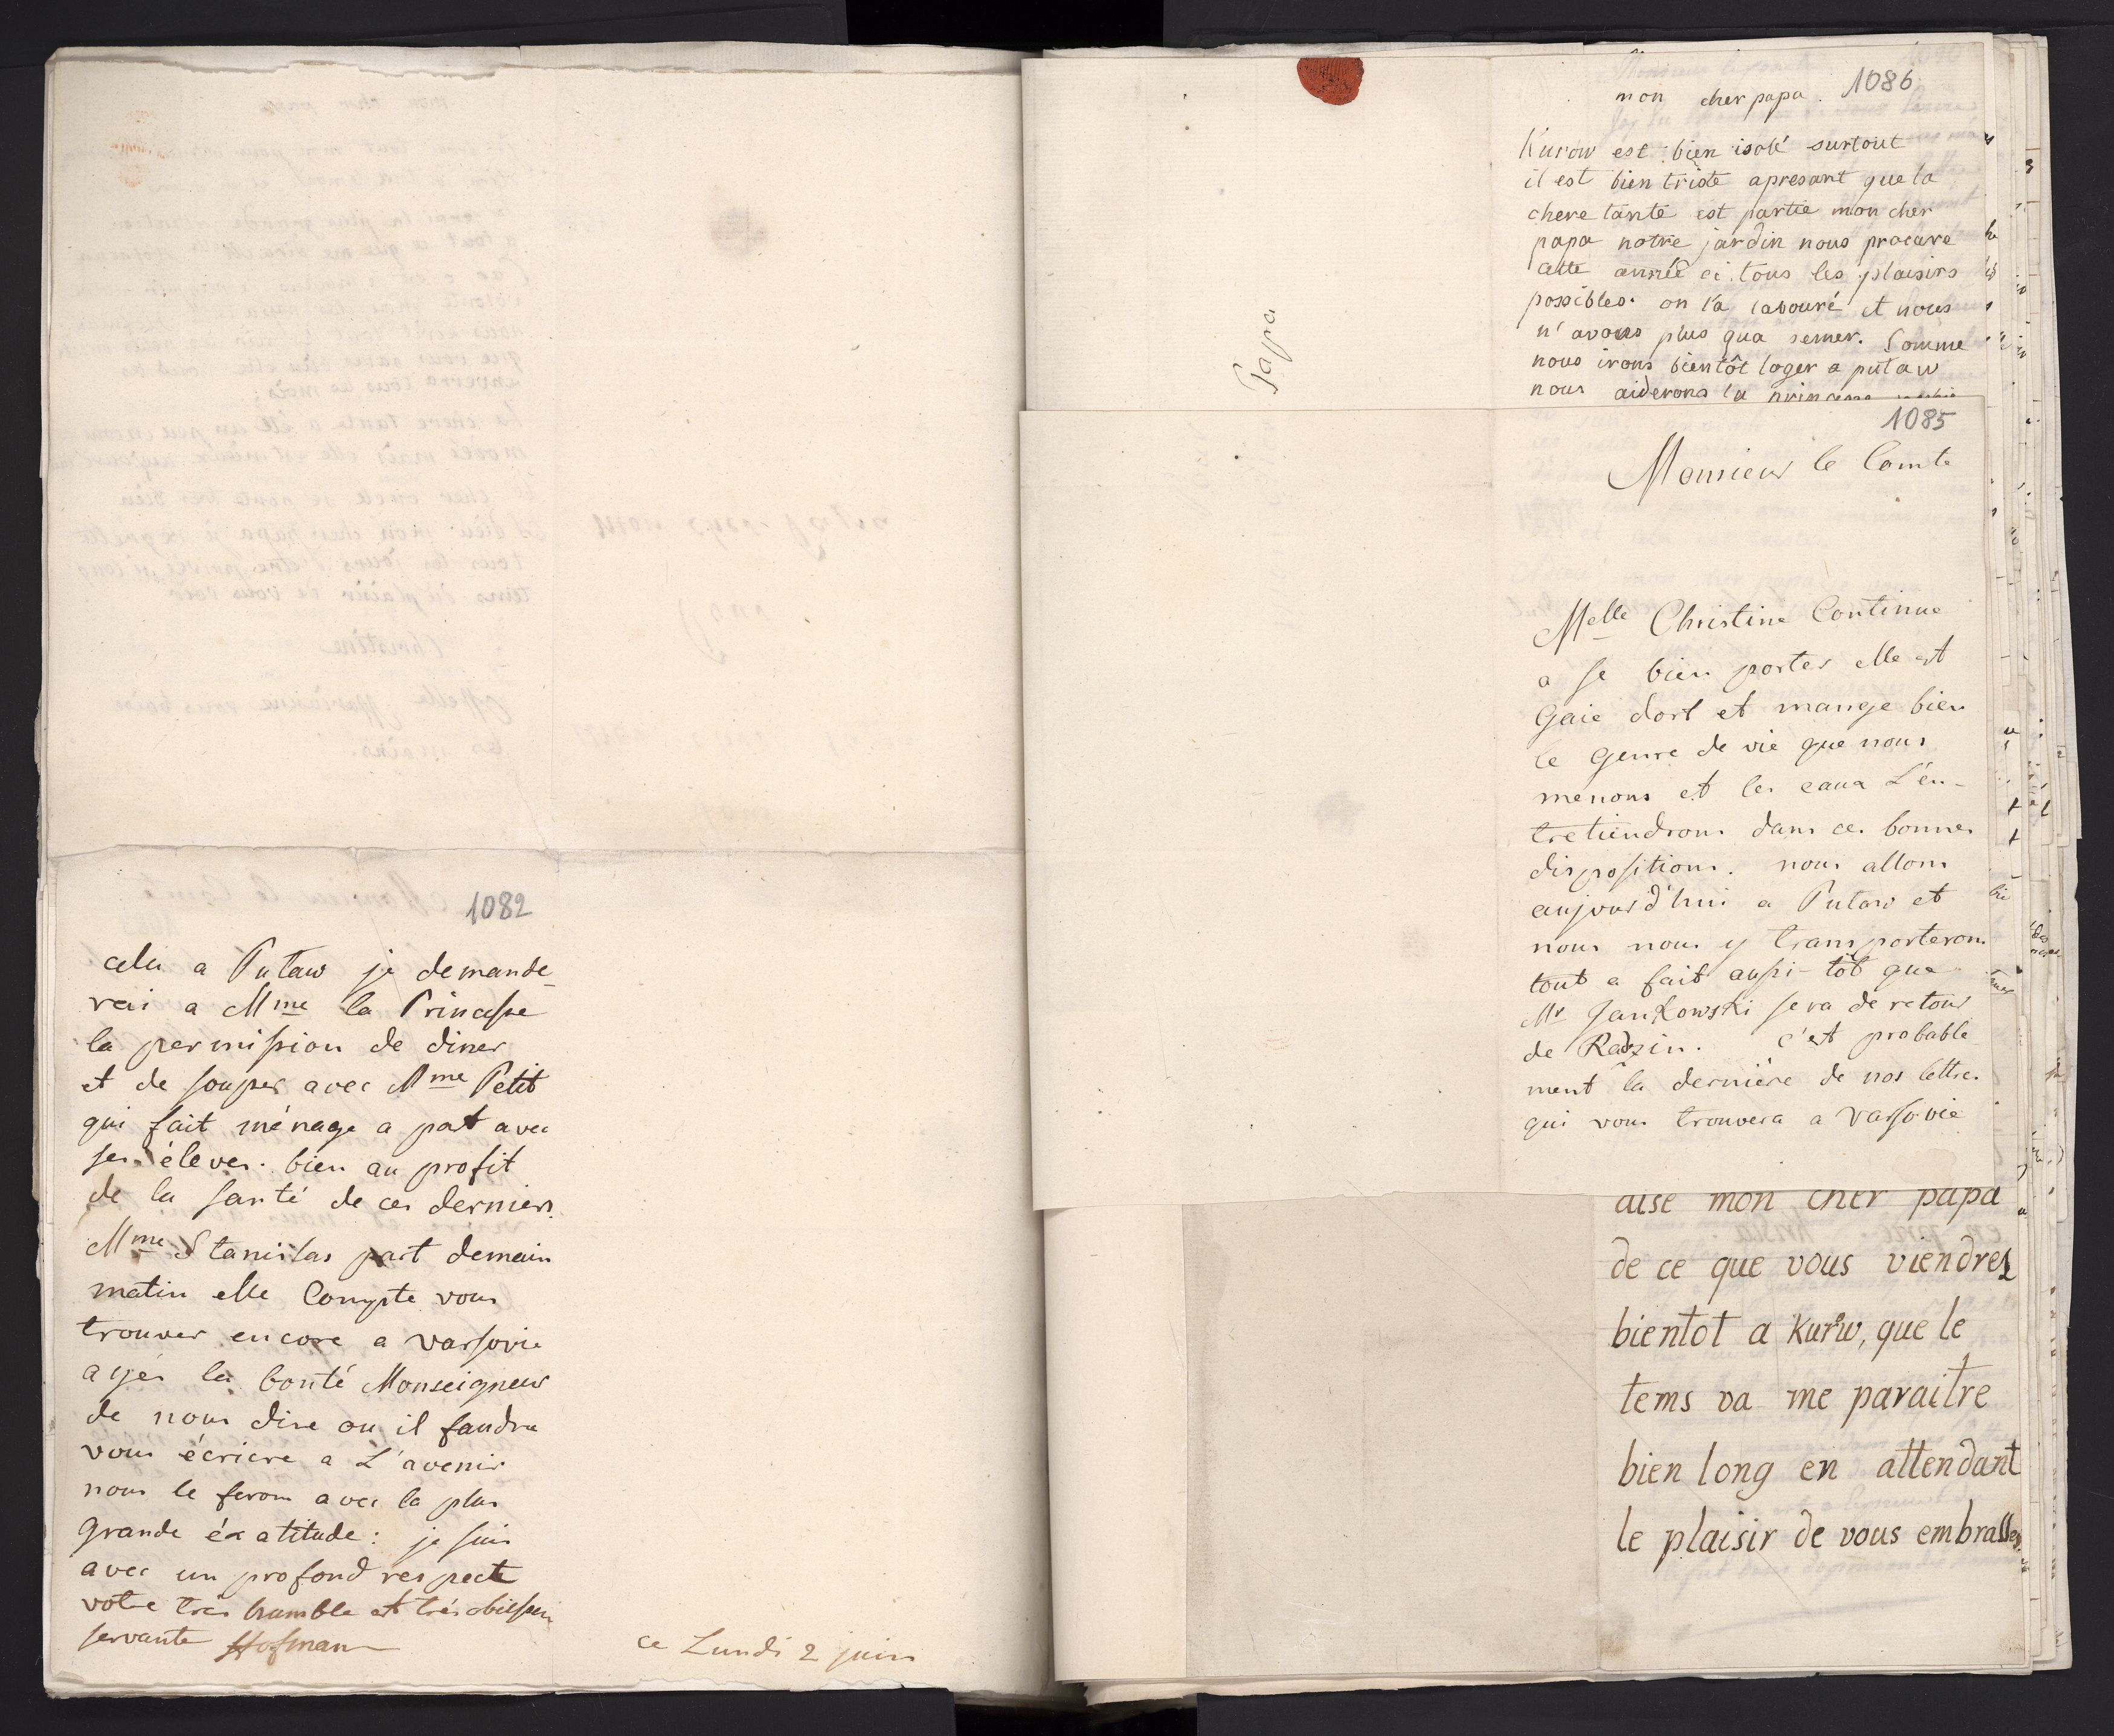 1082
cela a Putaw je demande_
rai a Mme la Princesse
la permission de diner
et de souper avec Mme Petit
qui fait ménage a part avec
ses élever. bien au profit
de la santé de ces derniers.
Mme Stanislas part demain
matin elle Compte vous
trouver encore a varsovie
ayés la bonté Monseigneur
de nous dire ou il faudra
vous écrire a L'avenir
nous le ferons avec la plus
grande éxatitude : je suis
avec un profond respecte
votre très humble et très obeissan
servante Hofman
ce Lundi 2 juin
1086
mon cher papa.
Kurow est bien isolé surtout
il est bien triste apresant que la
chere tante est partie mon cher
papa notre jardin nous procure
cette année ci tous les plaisirs
possibles. on l'a labouré et nous
n'avons plus qua semer. Comme
nous irons bientôt loger a putaw
nous aiderons la princesse
Papa
1085
Monsieur le Comte
Melle Christine Continue
a se bien porter elle est
Gaie dort et mange bien
le genre de vie que nous
menons et les eaux L'en-
tretiendrons dans ces bonnes
dispositions. nous allons
aujourd'hui a Putaw et
nous nous y transporterons
tout a fait aussi-tôt que
Mr Jankowski sera de retour
de Radzin. c'est probable
ment la derniére de nos lettres
qui vous trouvera a varsovie
aise mon cher papa
de ce que vous viendrez
bientot a Kurow, que le
tems va me paraitre
bien long en attendant
le plaisir de vous embrasser